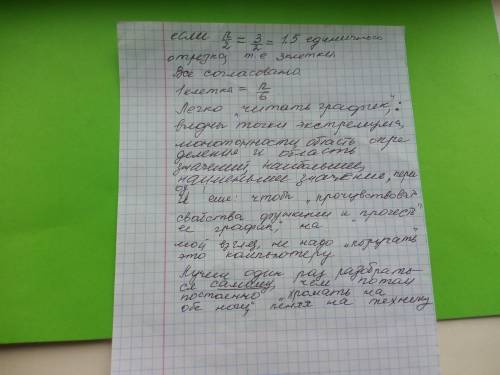 если π/2 = 3/2 = 1.5 единичного
отрезка, т.е 3 клетки
Все согласовано
1 клетка = π/6
Легко "читать график":
видны точки экстремума,
монотонности, область опре
деления и область
значений, наибольшее,
наименьшее значение, пери
од
И еще: чтобы "прочувствовать
свойства функции и прочесть
ее график", на
мой взгляд, не надо "поручать"
это компьютеру.
Лучше один раз разобрать
ся самому, чем потом
постоянно "хромать на
обе ноги" пеняя на технику